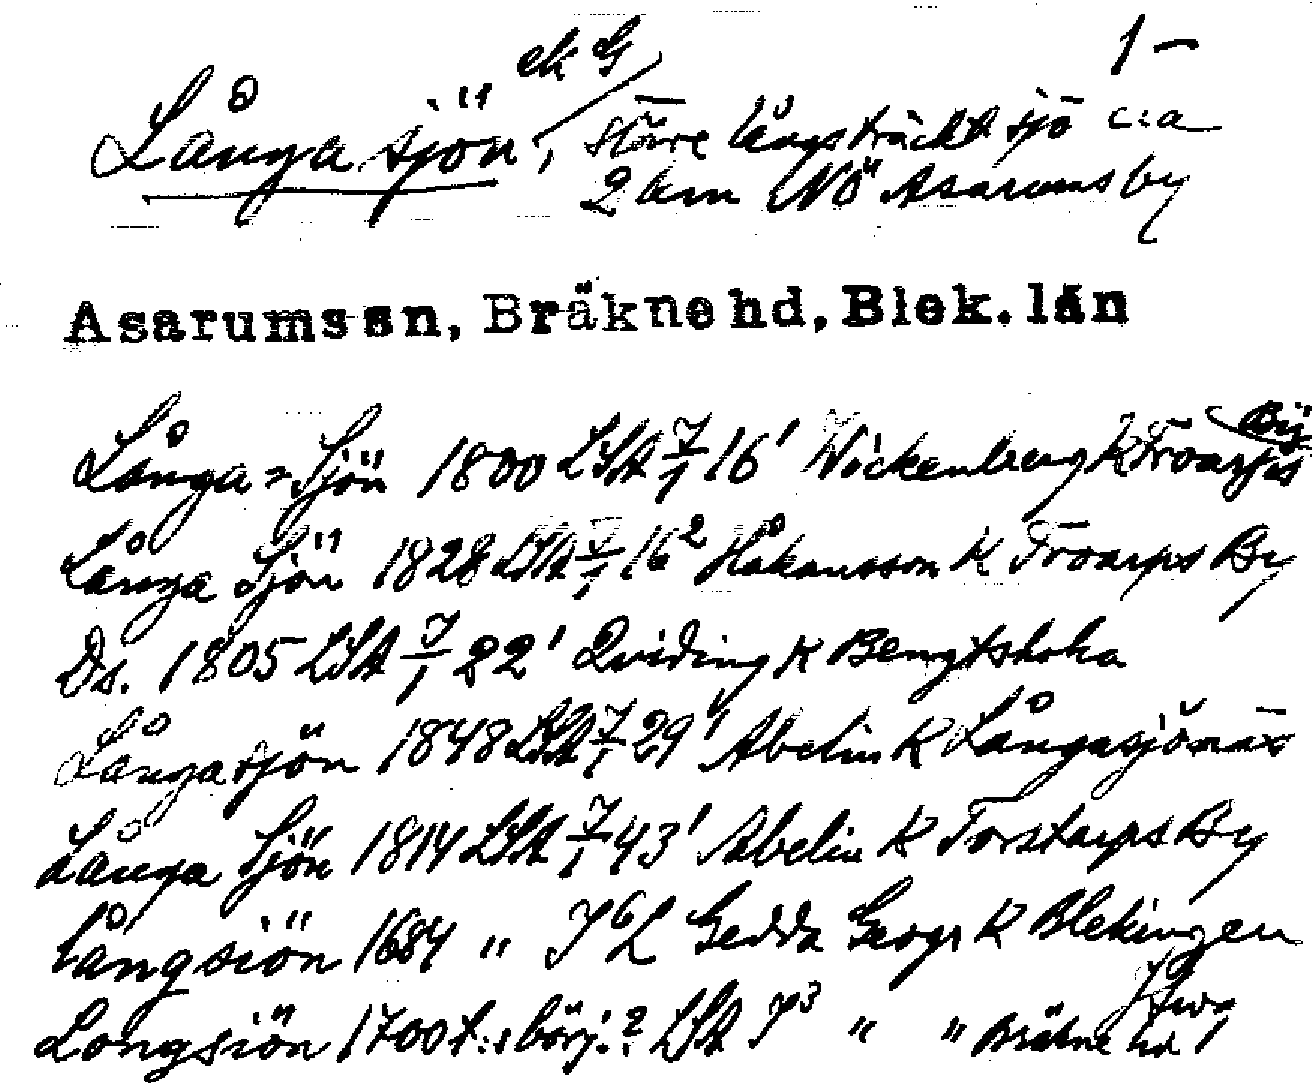 ek G 1 –
Långasjön, större långsträckt sjö c:a
2 km NÖ Asarums by
Asarums sn, Bräkne hd, Blek. län
Långa=Sjön 1800 LSA 7/1 16¹ Wickenberg K Troarps By
Långa Sjön 1828 LSA 7/1 16² Håkansson K Troarps By
Ds. 1805 LSA 7/1 22¹ Qviding K Bengtsboka
Långasjön 1848 LSA 7/1 29¹ Abelin K Långasjönäs
Långa Sjön 1814 LSA 7/1 43¹ Abelin K Torstarps By
Långsiön 1684 " Gedda Geogr K Blekingen
Longsiön 1700 t:s börj.? LSA " " Bräkne hd